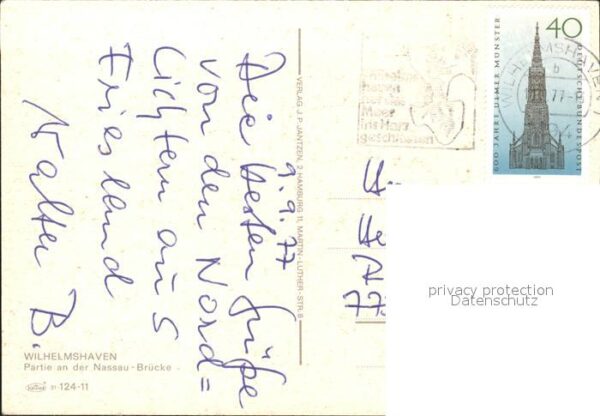 9.9.77
Die besten Grüße
von den Nord=
lichtern aus
Friesland
Walter B.
WILHELMSHAVEN
Partie an der Nassau-Brücke
124-11
VERLAG J. P. JANTZEN, 2 HAMBURG 11, MARTIN-LUTHER-STR. 8
Meer
ins Herz
geschlossen
40
600 JAHRE ULMER MÜNSTER
DEUTSCHE BUNDESPOST
WILHELMSHAVEN 1
b
77
privacy protection
Datenschutz